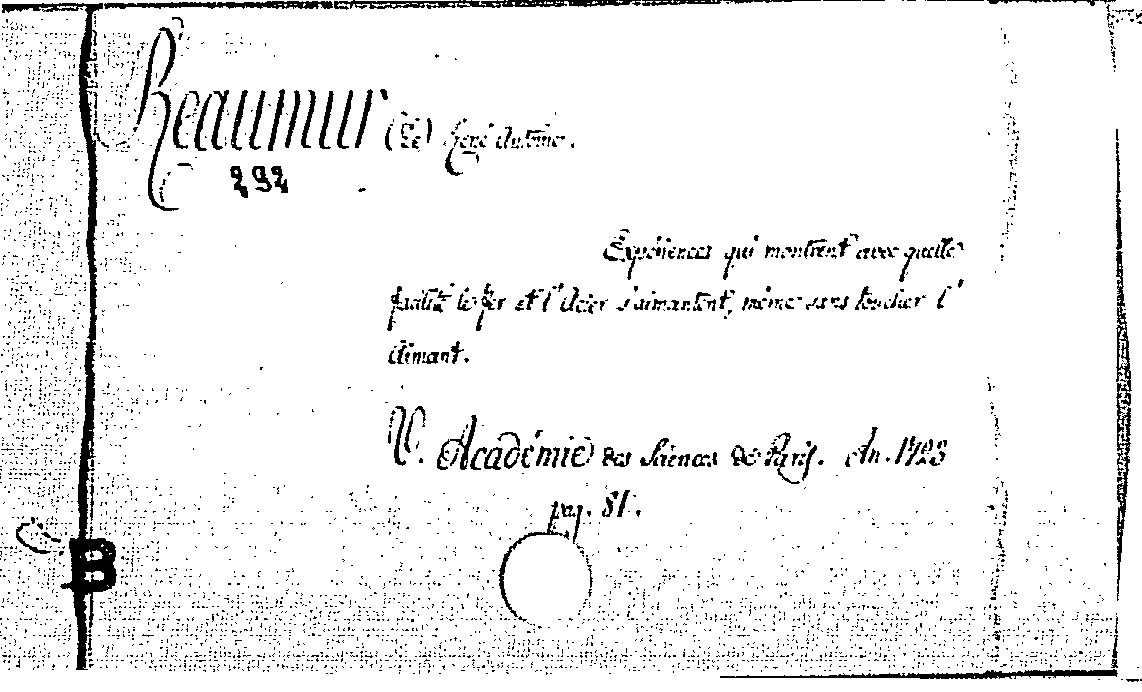 Reaumur (De) René Antoine.
292
Expériences qui montrent avec quelle
facilité le fer et l'Acier s'aimantent, même sans toucher l'
Aimant.
V. Académie des Sciences de Paris. An. 1723
pag. 81.
B